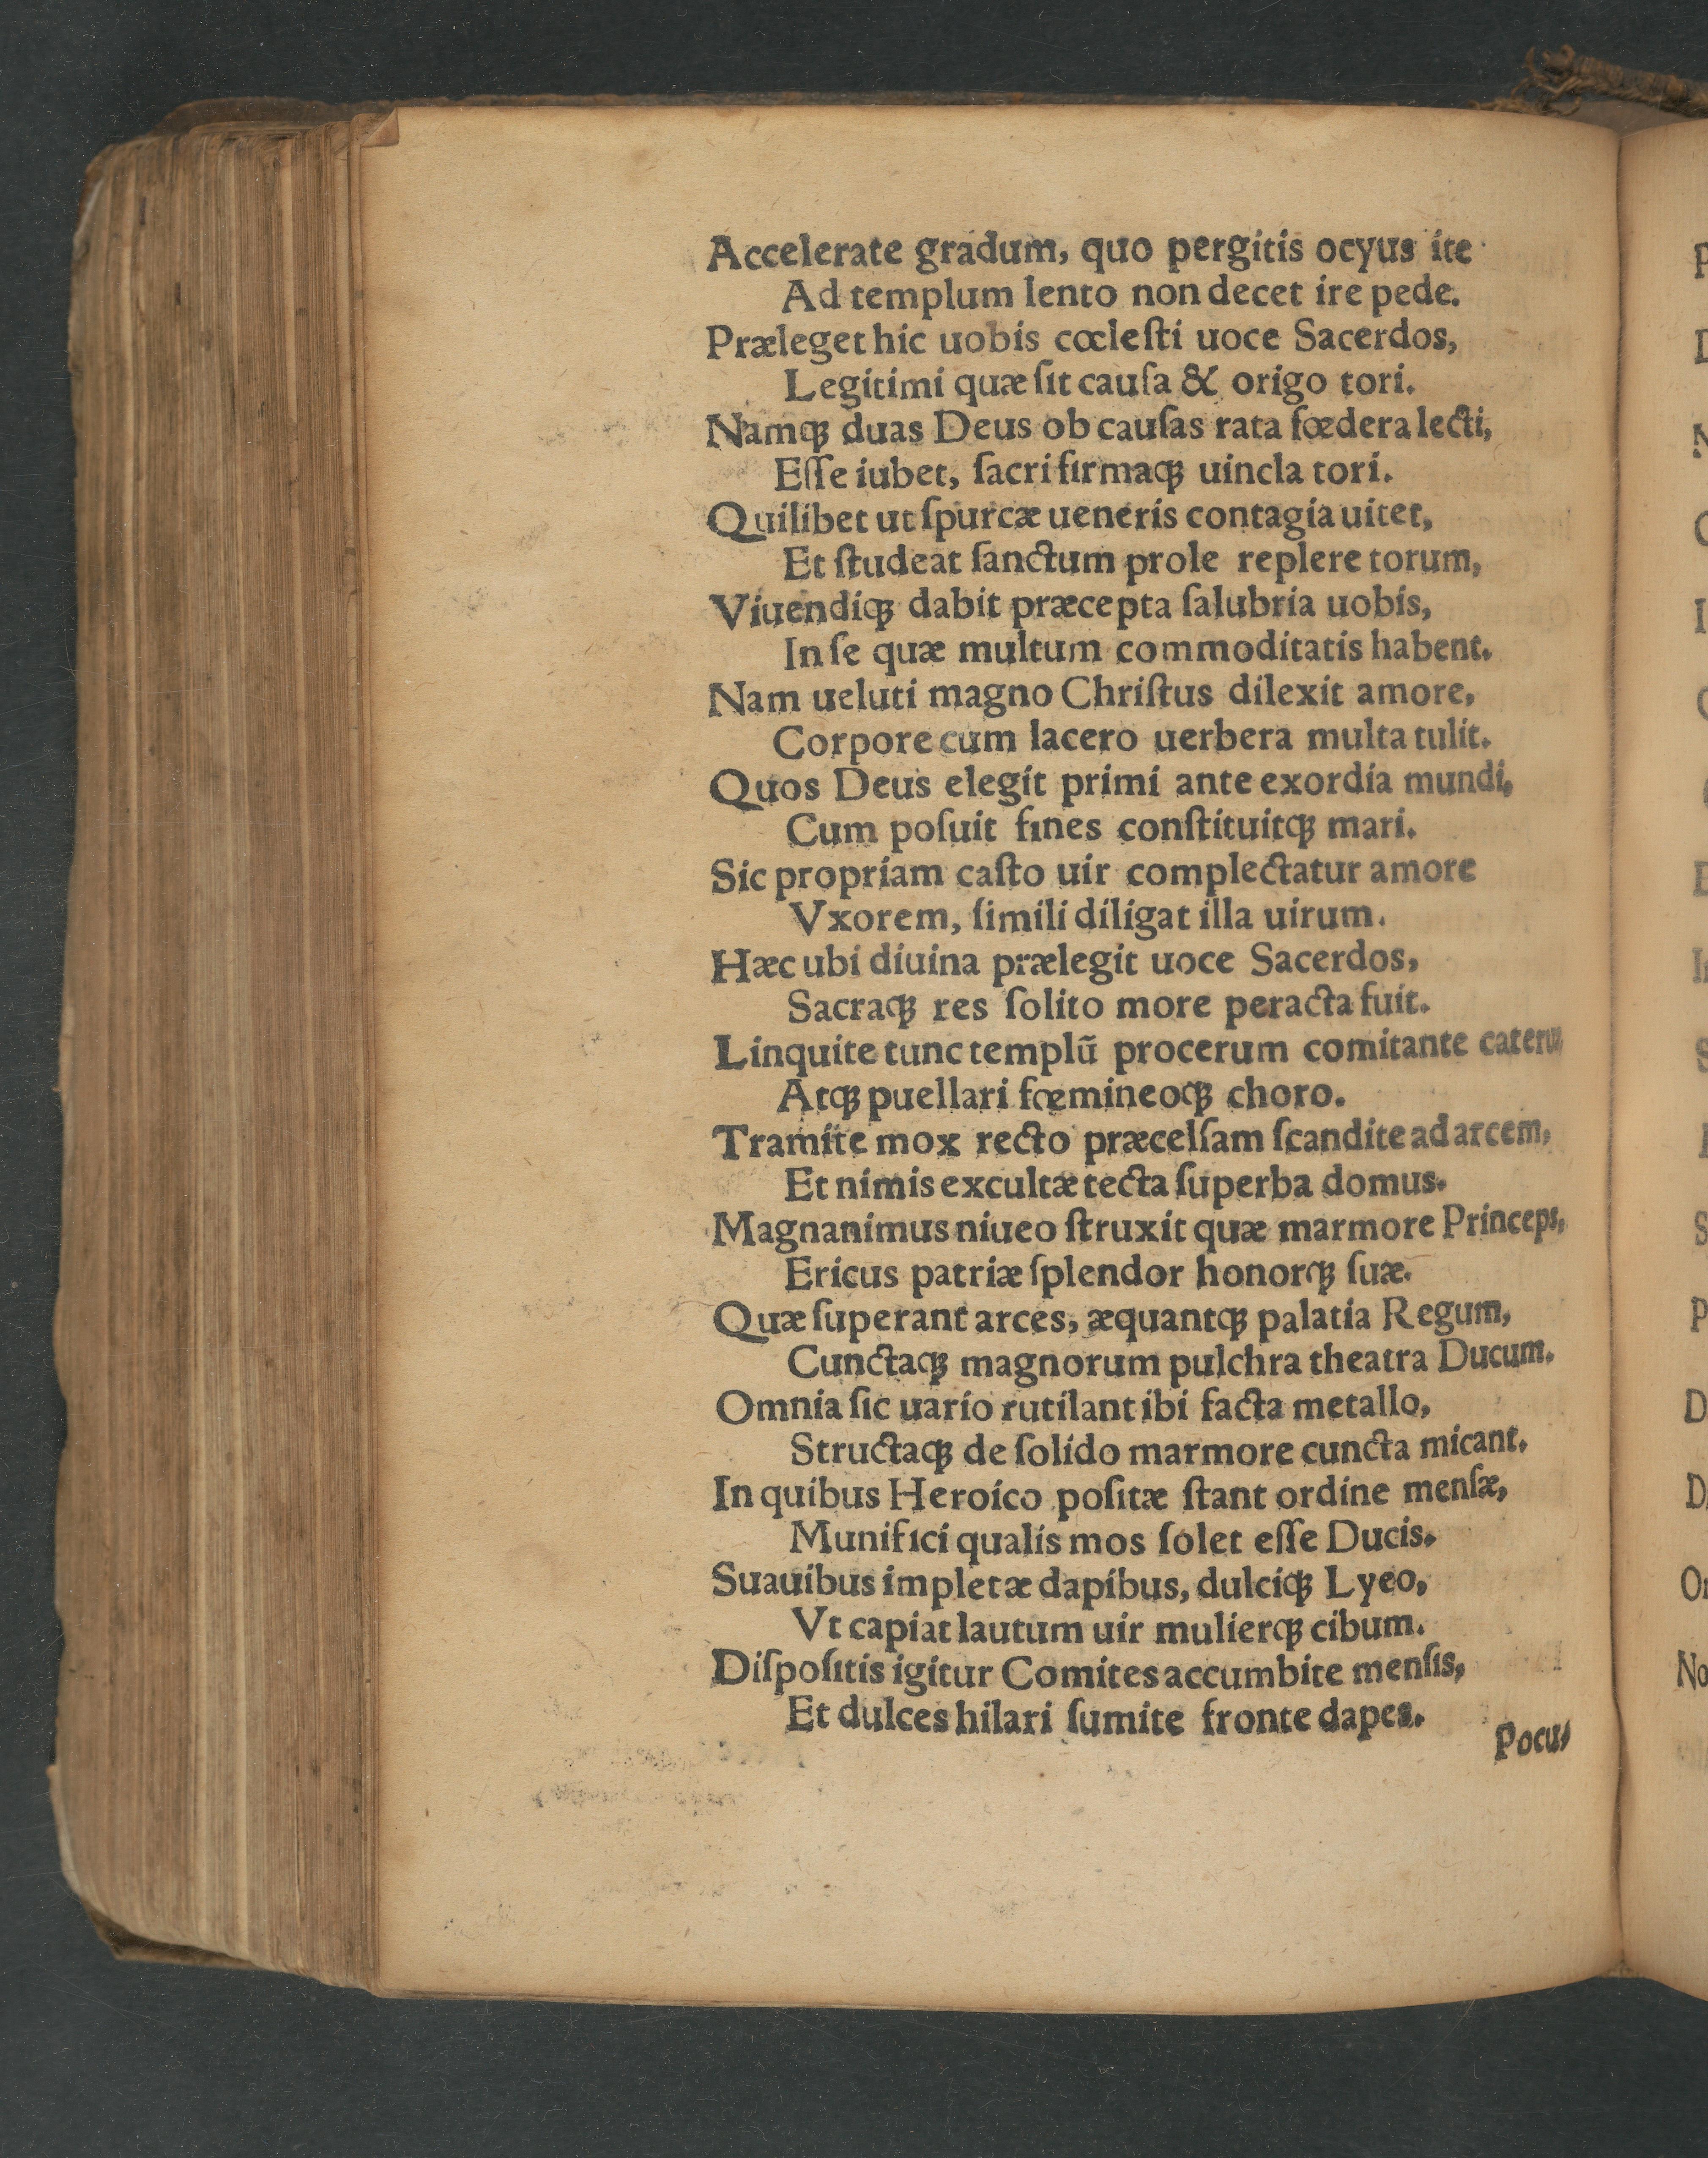 Accelerate gradum, quo pergitis ocyus ite
Ad templum lento non decet ire pede.
Præleget hic uobis cœleſti uoce Sacerdos,
Legitimi quæ ſit cauſa & origo tori.
Namqꝫ duas Deus ob cauſas rata fœdera lecti,
Eſſe iubet, ſacri firmaqꝫ uincla tori.
Quilibet ut ſpurcæ ueneris contagia uitet,
Et ſtudeat ſanctum prole replere torum,
Viuendiqꝫ dabit præcepta ſalubria uobis,
In ſe quæ multum commoditatis habent.
Nam ueluti magno Chriſtus dilexit amore,
Corpore cum lacero uerbera multa tulit.
Quos Deus elegit primi ante exordia mundi,
Cum poſuit fines conſtituitqꝫ mari.
Sic propriam caſto uir complectatur amore
Vxorem, ſimili diligat illa uirum.
Hæc ubi diuina prælegit uoce Sacerdos,
Sacraqꝫ res ſolito more peracta fuit.
Linquite tunc templū procerum comitante
Atqꝫ puellari fœmineoqꝫ choro.
Tramite mox recto præcelſam ſcandite ad arcem,
Et nimis excultæ tecta ſuperba domus.
Magnanimus niueo ſtruxit quæ marmore Princeps,
Ericus patriæ ſplendor honorqꝫ ſuæ.
Quæ ſuperant arces, æquantqꝫ palatia Regum,
Cunctaqꝫ magnorum pulchra theatra Ducum.
Omnia ſic uario rutilant ibi facta metallo,
Structaqꝫ de ſolido marmore cuncta micant.
In quibus Heroico poſitæ ſtant ordine menſæ,
Munifici qualis mos ſolet eſſe Ducis.
Suauibus impletæ dapibus, dulciqꝫ Lyeo,
Vt capiat lautum uir mulierqꝫ cibum.
Diſpoſitis igitur Comites accumbite menſis,
Et dulces hilari ſumite fronte dapes.
Pocu⸗